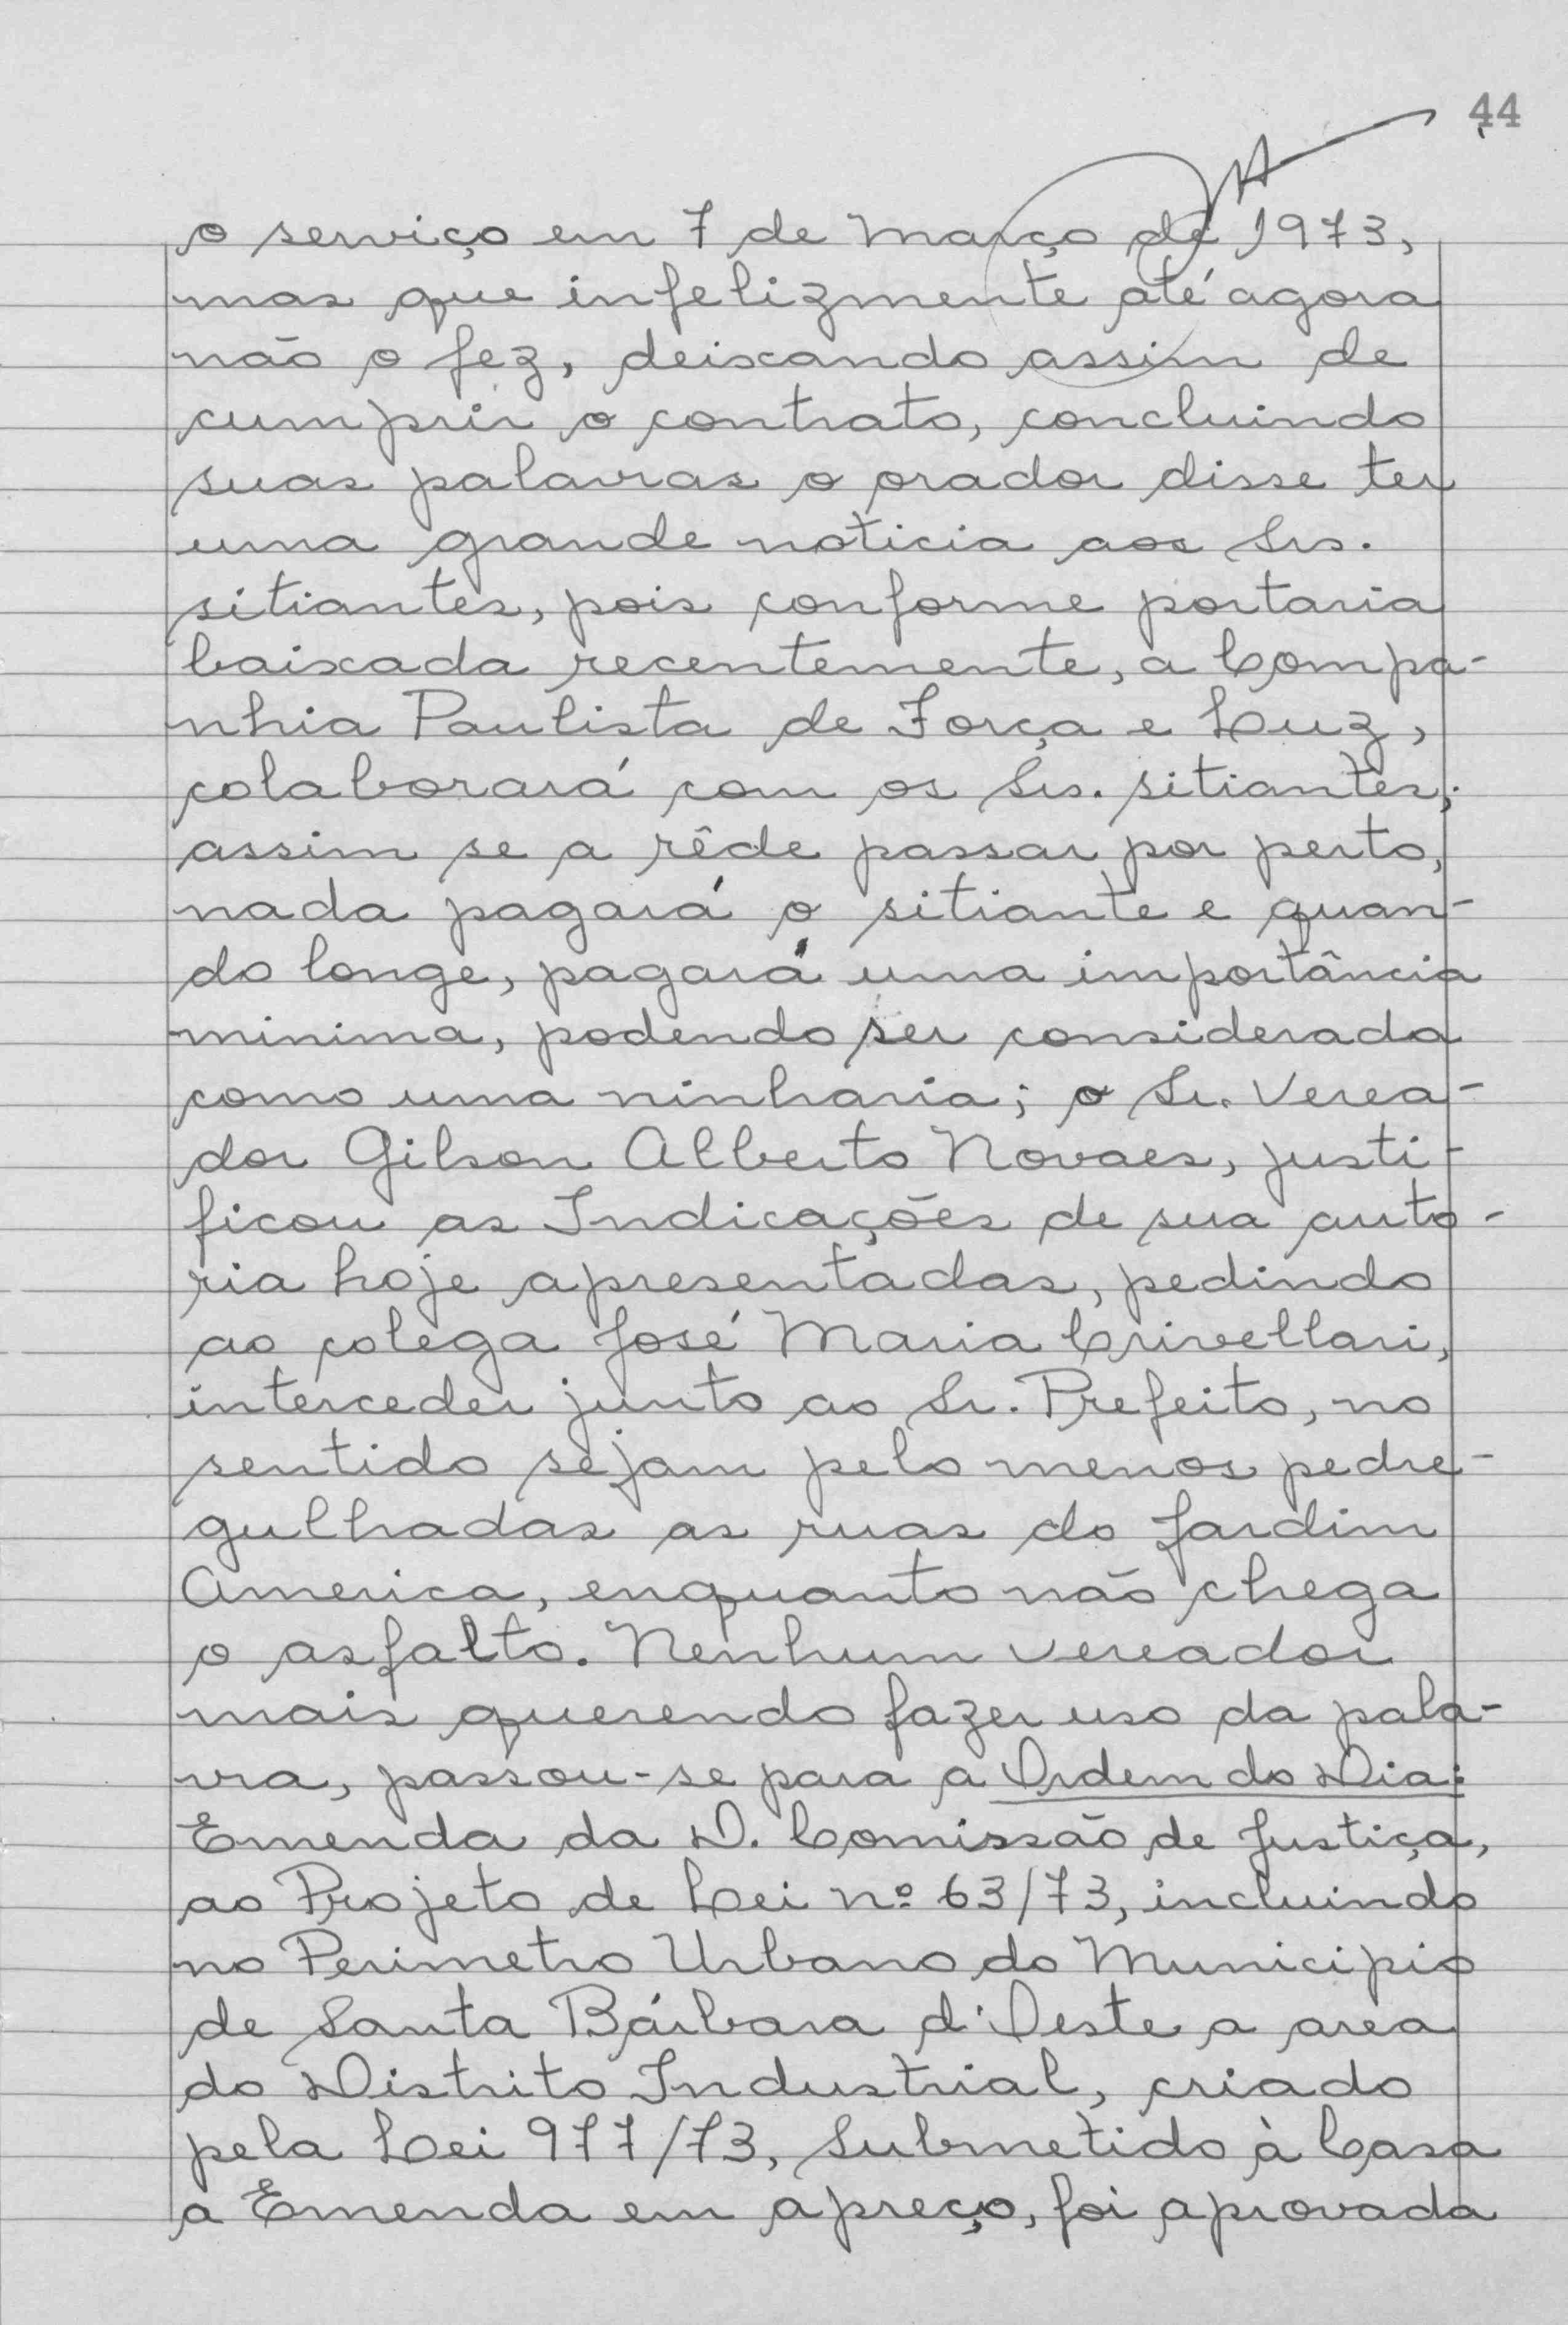 44
o serviço em 7 de Março de 1973,
mas que infelizmente até agora
não o fez, deixando assim de
cumprir o contrato, concluindo
suas palavras o orador disse ter
uma grande noticia aos Srs.
sitiantes, pois conforme portaria
baixada recentemente, a Compa-
nhia Paulista de Força e Luz,
colaborará com os Srs. sitiantes,
assim se a rêde passar por perto,
nada pagará o sitiante e quan-
do longe, pagará uma importância
minima, podendo ser considerada
como uma ninharia; o Sr. Verea-
dor Gilson Alberto Novaes, justi-
ficou as Indicações de sua auto-
ria hoje apresentadas, pedindo
ao colega José Maria Crivellari,
interceder junto ao Sr. Prefeito, no
sentido sejam pelo menos pedre-
gulhadas as ruas do Jardim
America, enquanto não chega
o asfalto. Nenhum vereador
mais querendo fazer uso da pala-
vra, passou-se para a Ordem do Dia:
Emenda da D. Comissão de Justiça,
ao Projeto de Lei nº 63/73, incluindo
no Perimetro Urbano do Municipio
de Santa Bárbara d'Oeste a area
do Distrito Industrial, criado
pela Lei 977/73, Submetido à Casa
a Emenda em apreço, foi aprovada